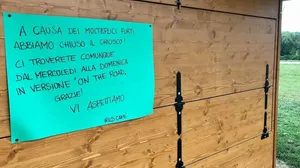 A CAUSA DEI MOLTEPLICI FURTI
ABBIAMO CHIUSO IL CHIOSCO!
CI TROVERETE COMUNQUE
DAL MERCOLEDÌ ALLA DOMENICA
IN VERSIONE "ON THE ROAD"
GRAZIE!
VI ASPETTIAMO